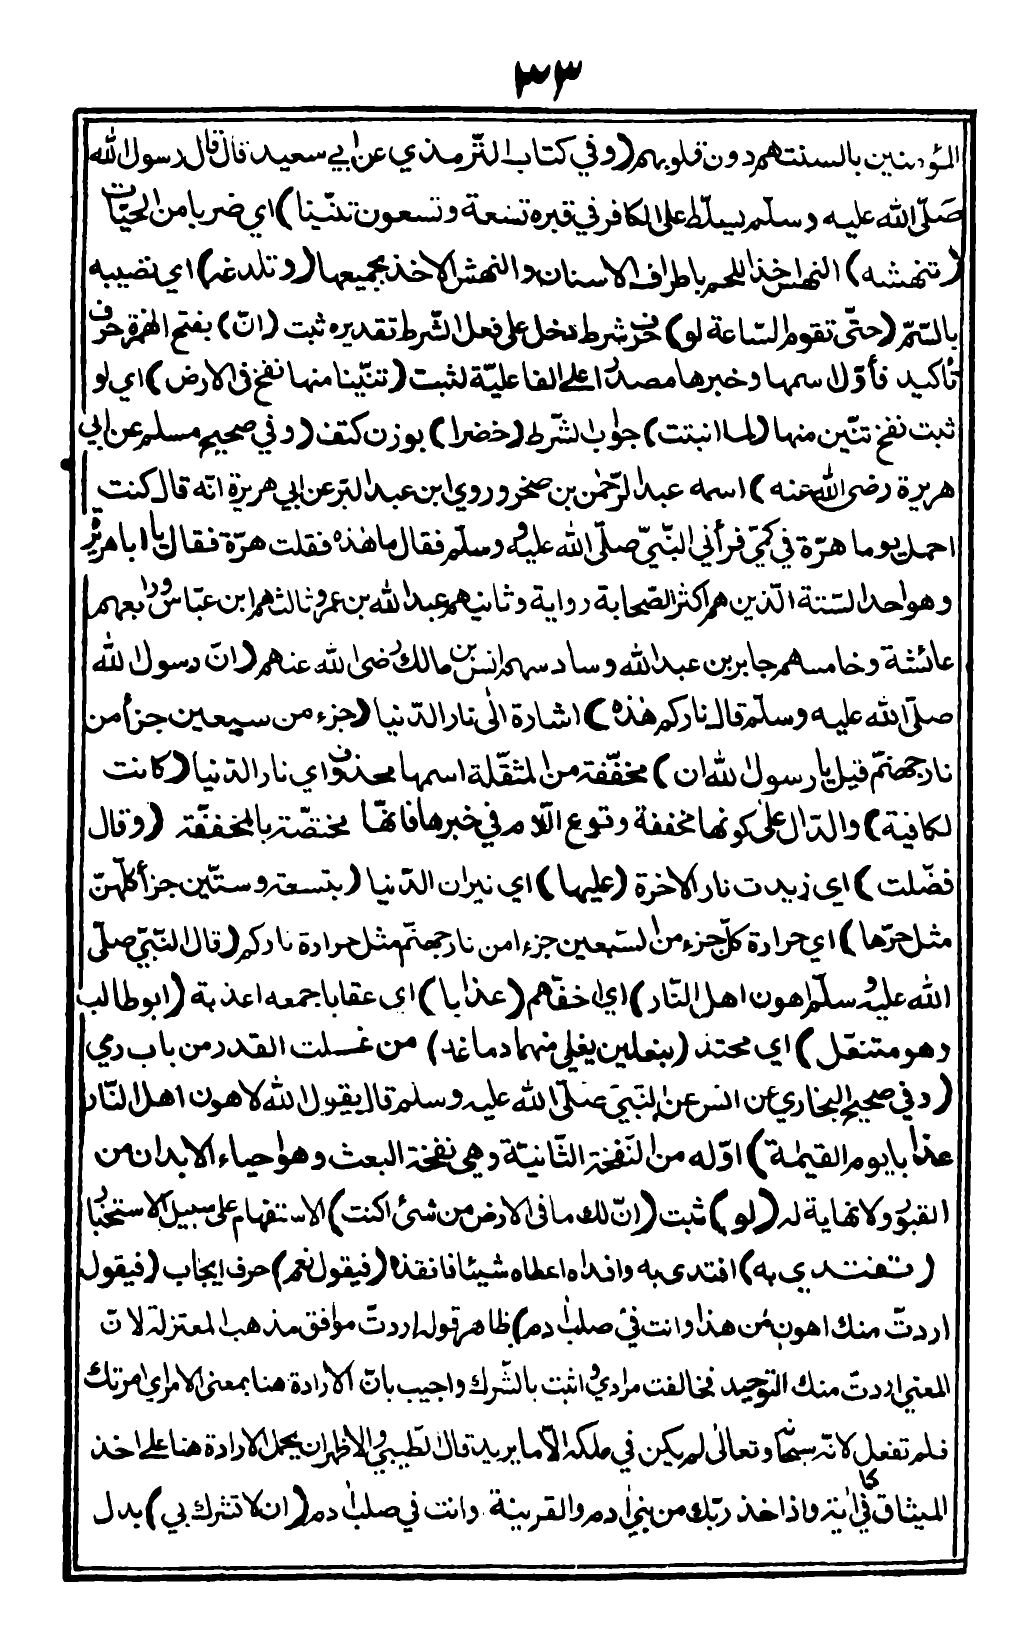 ٣٣
المؤمنين بالسنتهم دون قلوبهم (وفي كتاب الترمذي عن ابي سعيد قال قال رسول الله
صلّى الله عليه وسلّم يسلّط على الكافر في قبره تسعة وتسعون تنّينا) اي ضربا من الحيّات
(تنهشه) النهس اخذ اللحم باطراف الاسنان والنهش الاخذ بجميعها (وتلدغه) اي تصيبه
بالسّمّ (حتّى تقوم السّاعة لو) حرف شرط دخل على فعل الشّرط تقديره ثبت (انّ) بفتح الهمزة حرف
تأكيد فأوّل اسمها وخبرها مصدرا على الفاعليّة لثبت (تنّينا منها نفخ في الارض) اي لو
ثبت نفخ تنّين منها (لما انبتت) جواب الشّرط (خضرا) بوزن كتف (وفي صحيح مسلم عن ابي
هريرة رضى الله عنه) اسمه عبد الرّحمٰن بن صخر وروي ابن عبد البرّ عن ابي هريرة انّه قال كنت
احمل يوما هرّة في كمّي فرأني النّبيّ صلّى الله عليه وسلّم فقال ما هذه فقلت هرّة فقال يا ابا هريرة
وهو احد السّتة الّذين هم اكثر الصّحابة رواية وثانيهم عبد الله بن عمر وثالثهم ابن عبّاس ورابعهم
عائشة وخامسهم جابر بن عبد الله وسادسهم انس بن مالك رضى الله عنهم (انّ رسول الله
صلّى الله عليه وسلّم قال ناركم هذه) اشارة الى نار الدّنيا (جزء من سبعين جزأ من
نار جهنّم قيل يا رسول الله ان) مخفّفة من المثقّلة اسمها محذوف اي نار الدّنيا (كانت
لكافية) والدّال على كونها مخففة وقوع اللّام في خبرها فانهّا مختصّة بالمخففّة (وقال
فضّلت) اى زيدت نار الاخرة (عليها) اي نيران الدّنيا (بتسعة وستّين جزأ كلّهنّ
مثل حرّها) اي حرارة كلّ جزء من السّبعين جزءا من نار جهنّم مثل حرارة ناركم (قال النّبيّ صلّى
الله عليه وسلّم اهون اهل النّار) اي اخفّهم (عذابا) اى عقابا جمعه اعذبة (ابو طالب
وهو متنعّل) اي محتذ (بنعلين يغلي منهما دماغه) من غسلت القدر من باب رمي
(وفي صحيح البخاري عن انس عن النّبيّ صلّى الله عليه وسلّم قال يقول الله لاهون اهل النّار
عذابا يوم القيمٰة) اوّله من النّفخة الثّانيّة وهي نفخة البعث وهو احياء الابدان من
القبور ولا نهاية له (لو) ثبت (انّ لك ما في الارض من شئ اكنت) الاستفهام على سبيل الاستخبار
(تفتدي به) افتدى به وافداه اعطاه شيئا فانقذه (فيقول نعم) حرف ايجاب (فيقول
اردتّ منك اهون من هذا وانت في صلب اٰدم) ظاهر قوله اردتّ موافق مذهب المعتزلة لانّ
المعني اردتّ منك التّوحيد فخالفت مرادي واتيت بالشّرك واجيب بانّ الارادة هنا بمعنى الامر اي امرتك
فلم تفعل لانّه سبحانه وتعالى لم يكن في ملكه الّا ما يريد قال الطّيبي والاظهر ان يحمل الارادة هنا على اخذ
الميثاق كما في اٰية واذ اخذ ربّك من بني اٰدم والقرينة وانت في صلب اٰدم (ان لا تشرك بي) بدل